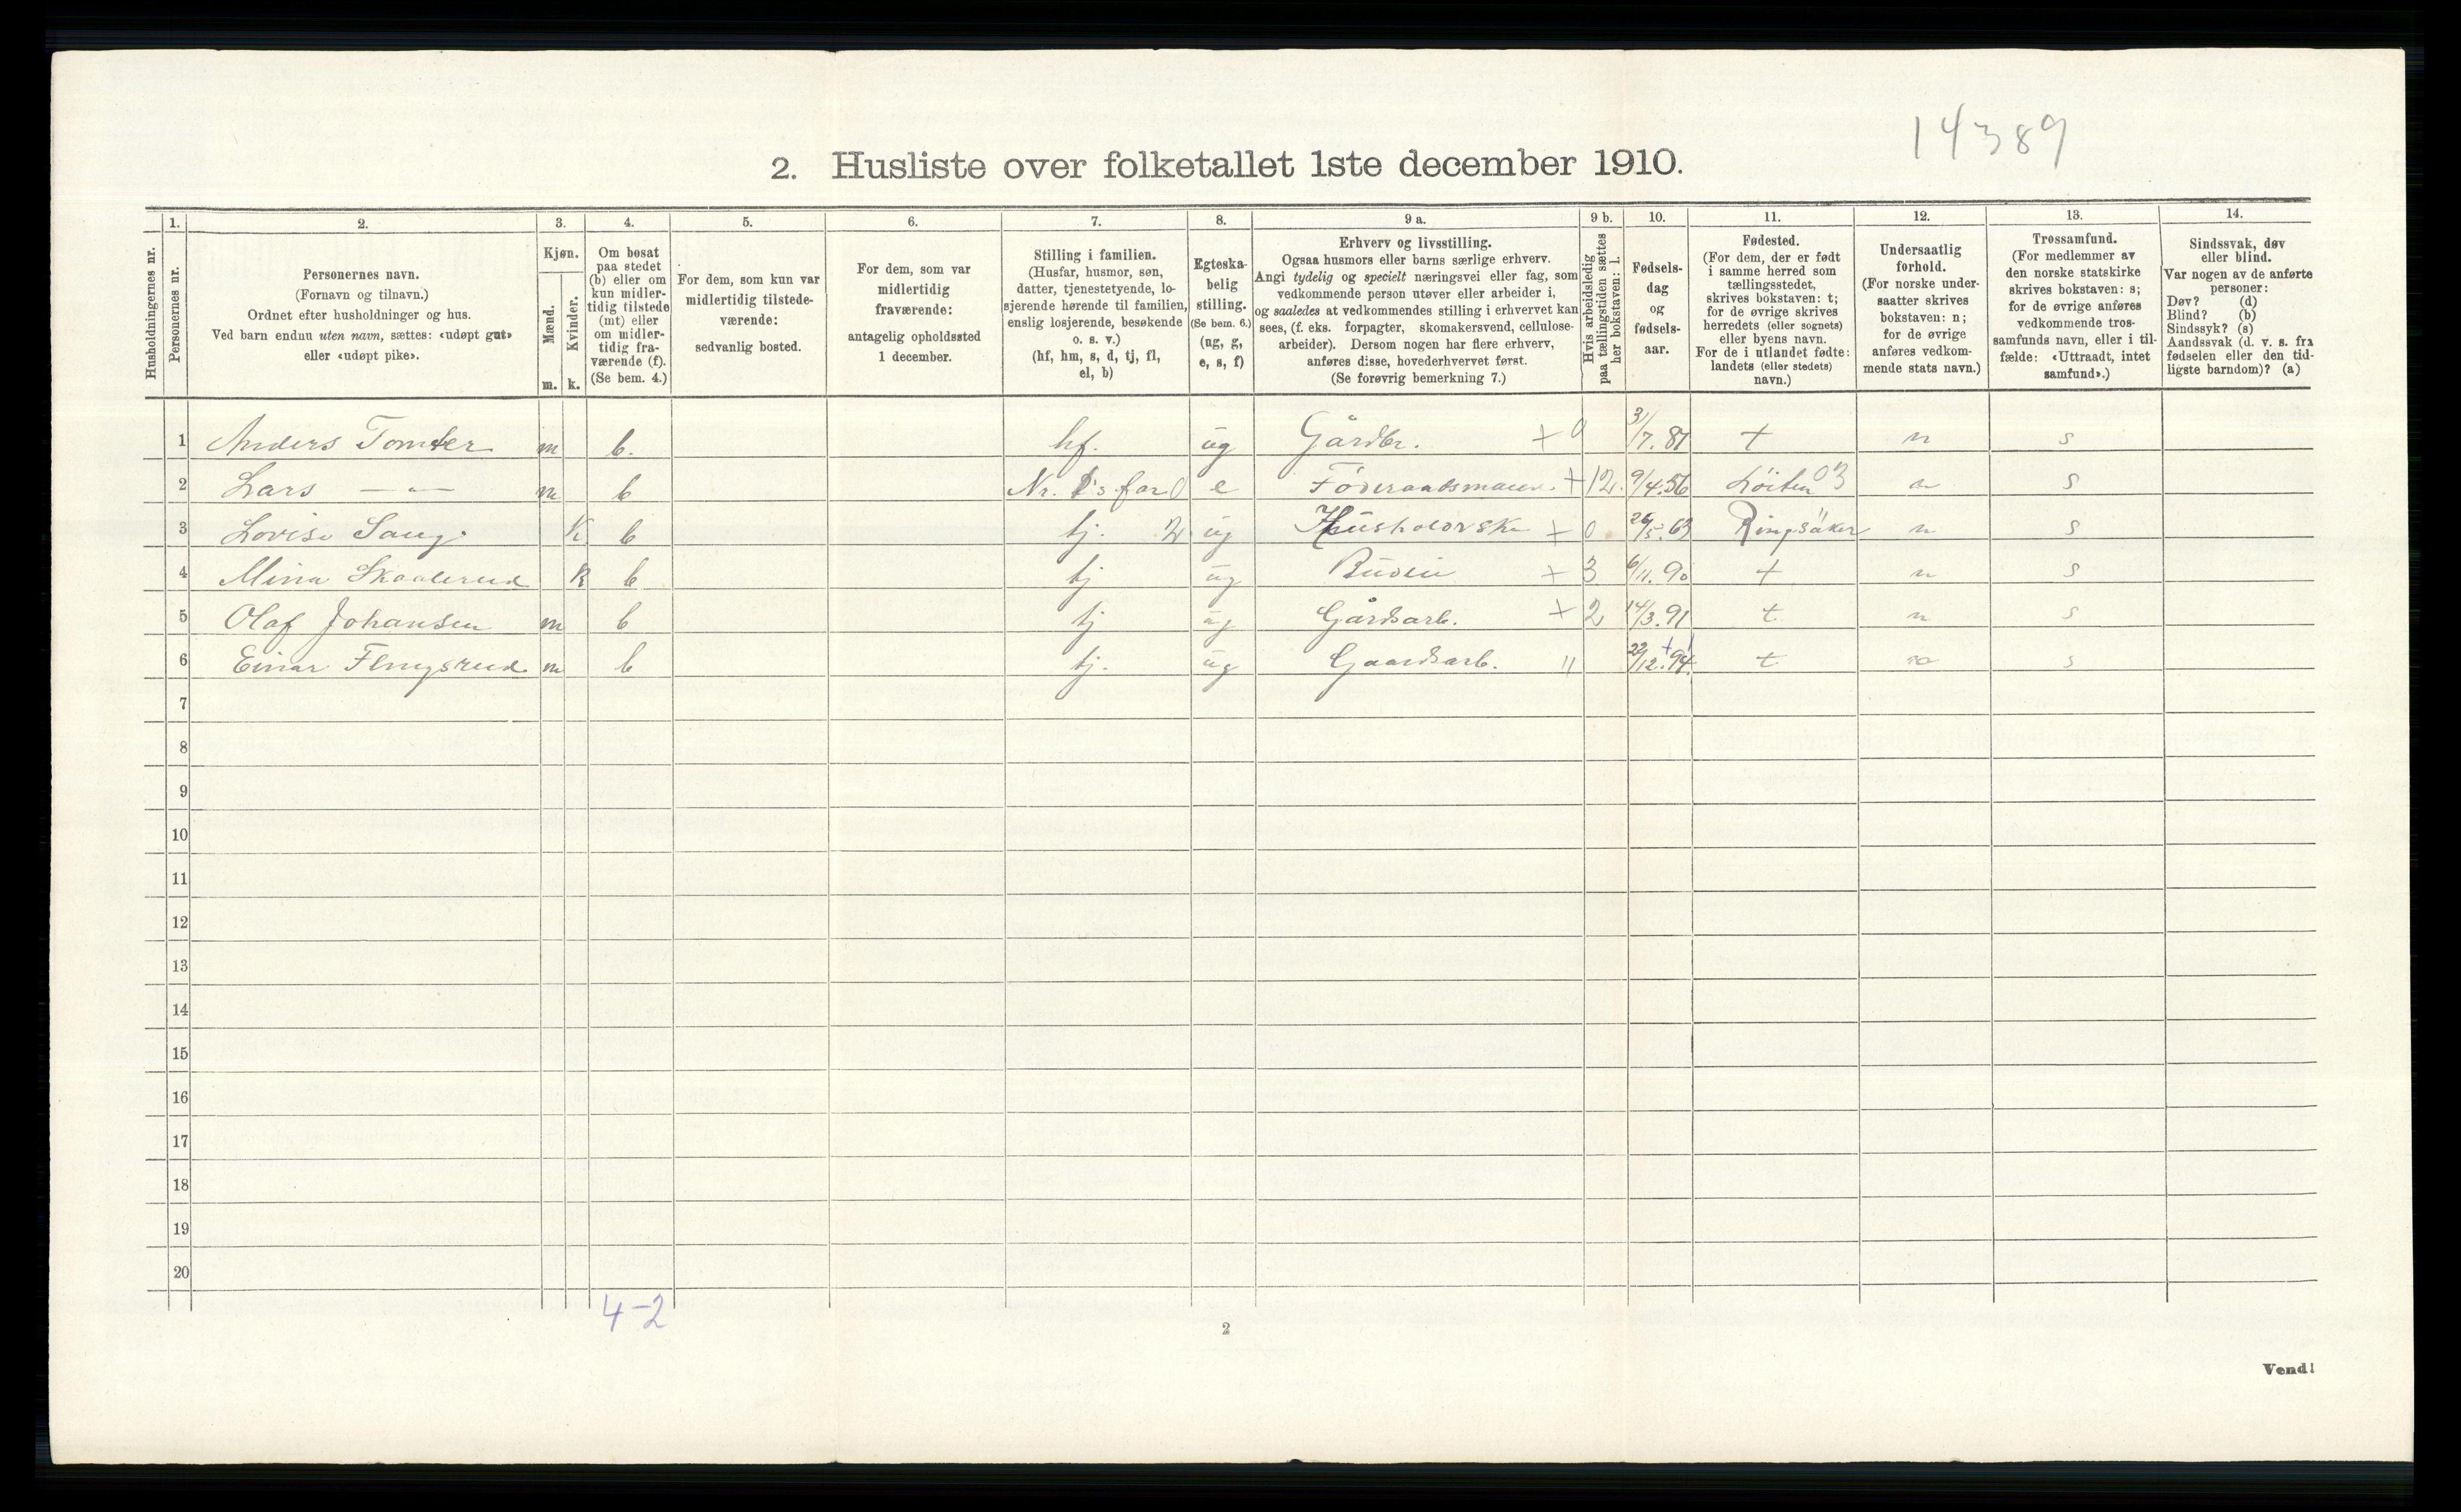 14389
2. Husliste over folketallet 1ste december 1910.
Husholdningernes nr.
1.
Personernes nr.
2.
Personernes navn.
(Fornavn og tilnavn.)
Ordnet efter husholdninger og hus.
Ved barn endnu uten navn, sættes: «udøpt gut»
eller «udøpt pike».
3.
Kjøn.
Mænd.
m.
Kvinder.
k.
4.
Om bosat
paa stedet
(b) eller om
kun midler-
tidig tilstede
(mt) eller
om midler-
tidig fra-
værende (f).
(Se bem. 4.)
5.
For dem, som kun var
midlertidig tilstede-
værende:
sedvanlig bosted.
6.
For dem, som var
midlertidig
fraværende:
antagelig opholdssted
1 december.
7.
Stilling i familien.
(Husfar, husmor, søn,
datter, tjenestetyende, lo-
sjerende hørende til familien,
enslig losjerende, besøkende
o. s. v.)
(hf, hm, s, d, tj, fl,
el, b)
8.
Egteska-
belig
stilling.
(Se bem. 6.)
(ug, g,
e, s, f)
9 a.
Erhverv og livsstilling.
Ogsaa husmors eller barns særlige erhverv.
Angi tydelig og specielt næringsvei eller fag, som
vedkommende person utøver eller arbeider i,
og saaledes at vedkommendes stilling i erhvervet kan
sees, (f. eks. forpagter, skomakersvend, cellulose-
arbeider). Dersom nogen har flere erhverv,
anføres disse, hovederhvervet først.
(Se forøvrig bemerkning 7.)
9 b.
Hvis arbeidsledig
paa tællingstiden sættes
her bokstaven: l.
10.
Fødsels-
dag
og
fødsels-
aar.
11.
Fødested.
(For dem, der er født
i samme herred som
tællingsstedet,
skrives bokstaven: t;
for de øvrige skrives
herredets (eller sognets)
eller byens navn.
For de i utlandet fødte:
landets (eller stedets)
navn.)
12.
Undersaatlig
forhold.
(For norske under-
saatter skrives
bokstaven: n;
for de øvrige
anføres vedkom-
mende stats navn.)
13.
Trossamfund.
(For medlemmer av
den norske statskirke
skrives bokstaven: s;
for de øvrige anføres
vedkommende tros-
samfunds navn, eller i til-
fælde: «Uttraadt, intet
samfund».)
14.
Sindssvak, døv
eller blind.
Var nogen av de anførte
personer:
Døv? (d)
Blind? (b)
Sindssyk? (s)
Aandssvak (d. v. s. fra
fødselen eller den tid-
ligste barndom)? (a)
1 Anders Tomter m b. hf. ug Gårdbr. + 9 3/7. 87 t n s
2 Lars —„— m b Nr. 1's far 0 e Föderaadsmann + 12. 9/4.56 Löiten 03 n s
3 Lovise Saug. K b tj. 2 ug Husholdrske + 0 26/5.63 Ringsäker n s
4 Mina Skaalerud K b tj ug Budeie + 3 6/11.90 t n s
5 Olaf Johansen m b tj ug Gårdsarb. + 2 14/3.91 t n s
6 Einar m b tj. ug Gaardsarb. " 22/12.94. t n s
7
8
9
10
11
12
13
14
15
16
17
18
19
20
4-2
2
Vend!